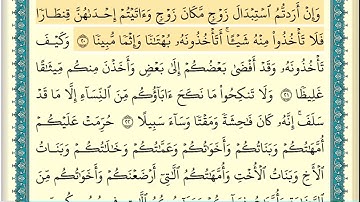 وَإِنْ أَرَدتُّمُ ٱسْتِبْدَالَ زَوْجٍ مَّكَانَ زَوْجٍ وَءَاتَيْتُمْ إِحْدَىٰهُنَّ قِنطَارًا
فَلَا تَأْخُذُوا۟ مِنْهُ شَيْـًٔا أَتَأْخُذُونَهُۥ بُهْتَٰنًا وَإِثْمًا مُّبِينًا ٢٠ وَكَيْفَ
تَأْخُذُونَهُۥ وَقَدْ أَفْضَىٰ بَعْضُكُمْ إِلَىٰ بَعْضٍ وَأَخَذْنَ مِنكُم مِّيثَٰقًا
غَلِيظًا ٢١ وَلَا تَنكِحُوا۟ مَا نَكَحَ ءَابَآؤُكُم مِّنَ ٱلنِّسَآءِ إِلَّا مَا قَدْ
سَلَفَ إِنَّهُۥ كَانَ فَٰحِشَةً وَمَقْتًا وَسَآءَ سَبِيلًا ٢٢ حُرِّمَتْ عَلَيْكُمْ
أُمَّهَٰتُكُمْ وَبَنَاتُكُمْ وَأَخَوَٰتُكُمْ وَعَمَّٰتُكُمْ وَخَٰلَٰتُكُمْ وَبَنَاتُ
ٱلْأَخِ وَبَنَاتُ ٱلْأُخْتِ وَأُمَّهَٰتُكُمُ ٱلَّٰتِىٓ أَرْضَعْنَكُمْ وَأَخَوَٰتُكُم مِّنَ